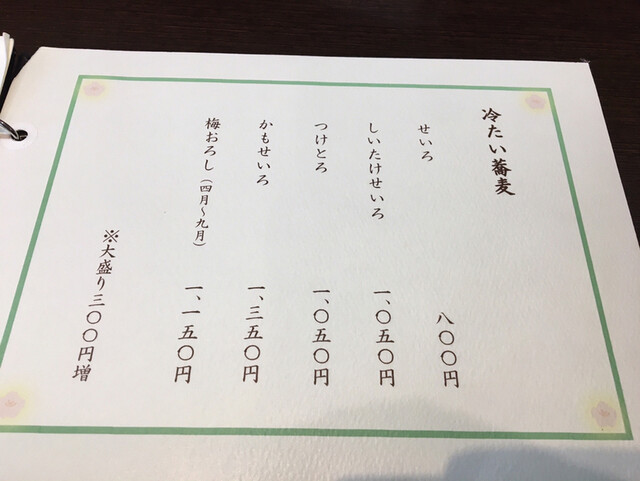 冷たい蕎麦
せいろ 八〇〇円
しいたけせいろ 一、〇五〇円
つけとろ 一、〇五〇円
かもせいろ 一、三五〇円
梅おろし（四月～九月） 一、一五〇円
※大盛り三〇〇円増